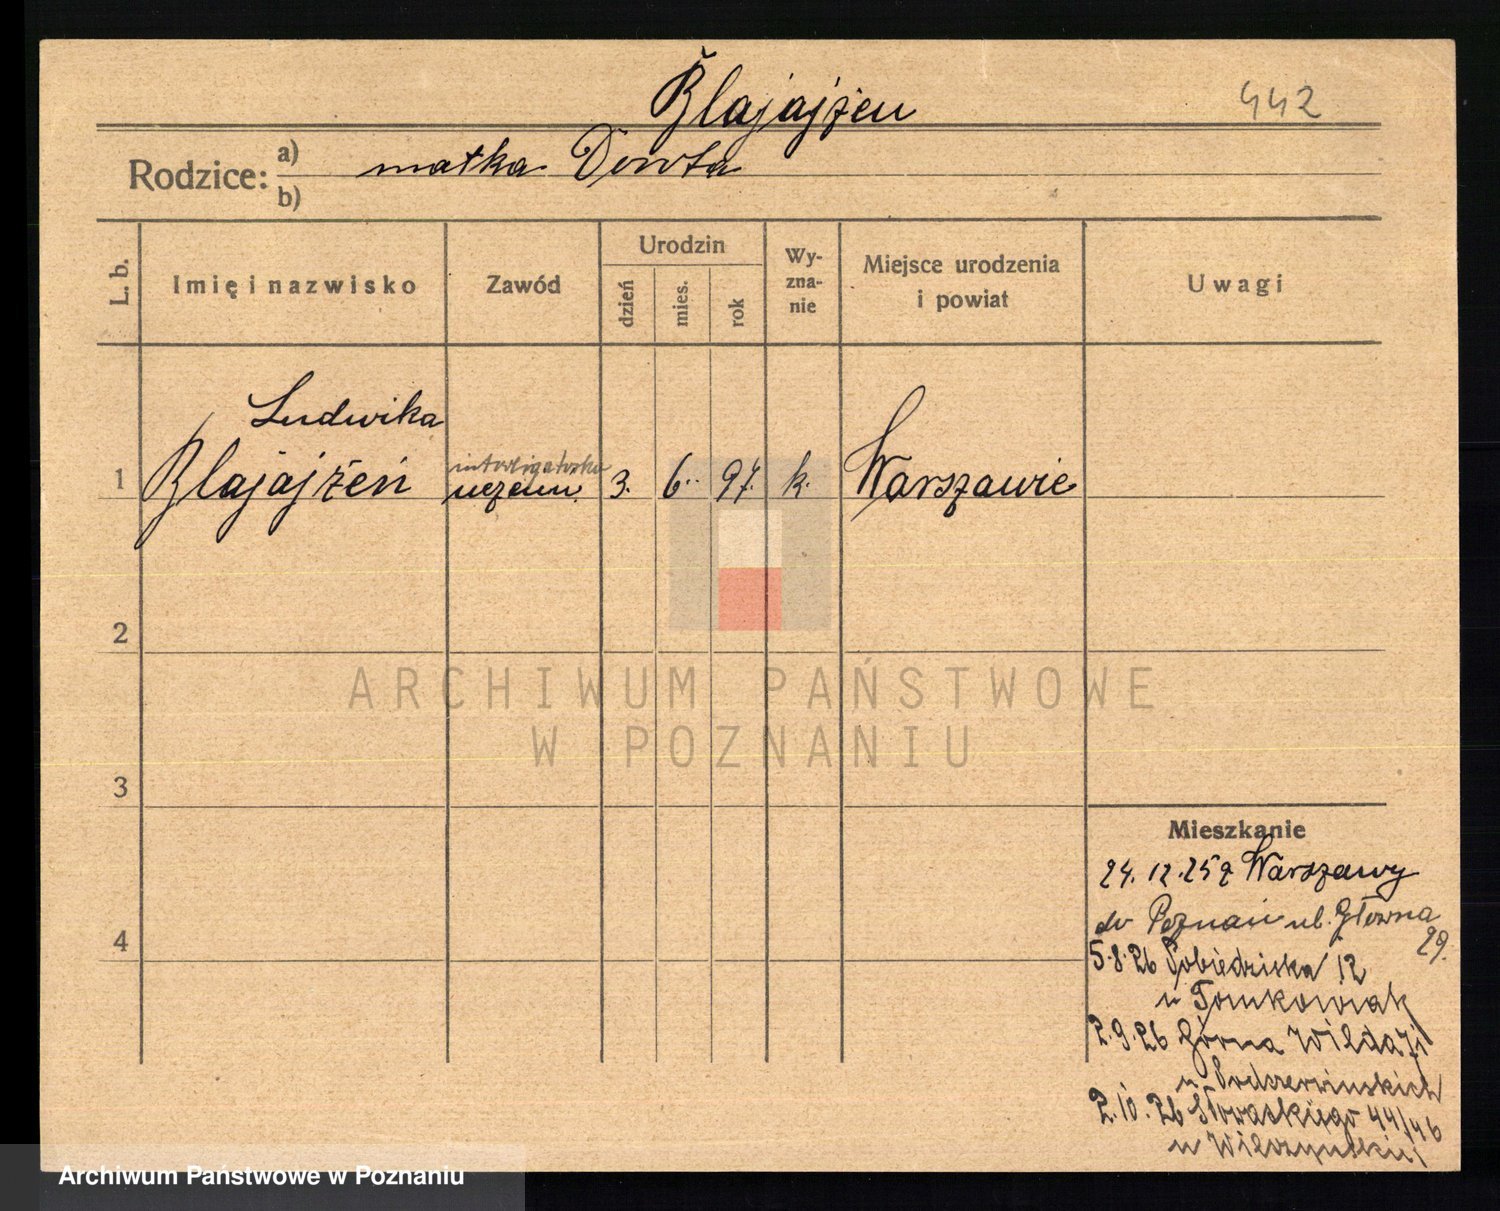 Blajajżeu
442
Rodzice: a) matka Dowta
b)
L. b.
Imię i nazwisko
Zawód
Urodzin
dzień
mies.
rok
Wy-
zna-
nie
Miejsce urodzenia
i powiat
Uwagi
Ludwika
1 Blajajżeń
introligatorka
uczenn.
3. 6. 97. k. Warszawie
2
3
4
ARCHIWUM PAŃSTWOWE
W POZNANIU
Mieszkanie
24. 12. 25 z Warszawy
do Poznań ul. Główna
29.
5.8.26 Pobiedziska 12
u Tomkowiak
2.9.26 Górna Wilda 71
u Podczerwinskich
2.10.26 Słowackiego 44/46
u Wilczyńskiej
Archiwum Państwowe w Poznaniu